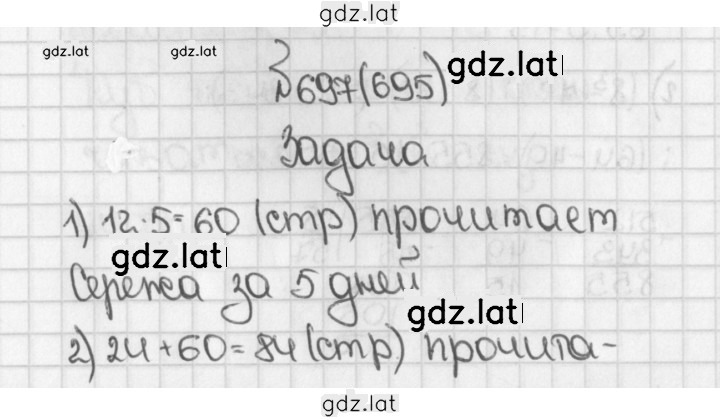 gdz.lat
gdz.lat gdz.lat
№697(695) gdz.lat
Задача
1) 12·5=60 (стр) прочитает
gdz.lat
Сережа за 5 дней
gdz.lat
2) 24+60=84 (стр) прочита-
gdz.lat